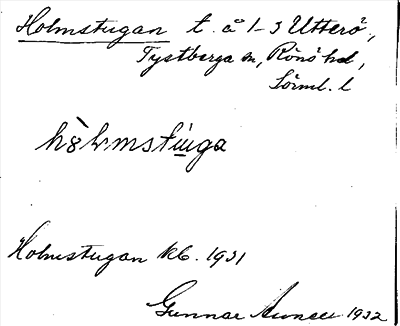 Holmstugan t. å 1-3 Utterö,
Tystberga sn, Rönö hd,
Sörml. l
Holmstugan kb. 1931
Gunnar 1932